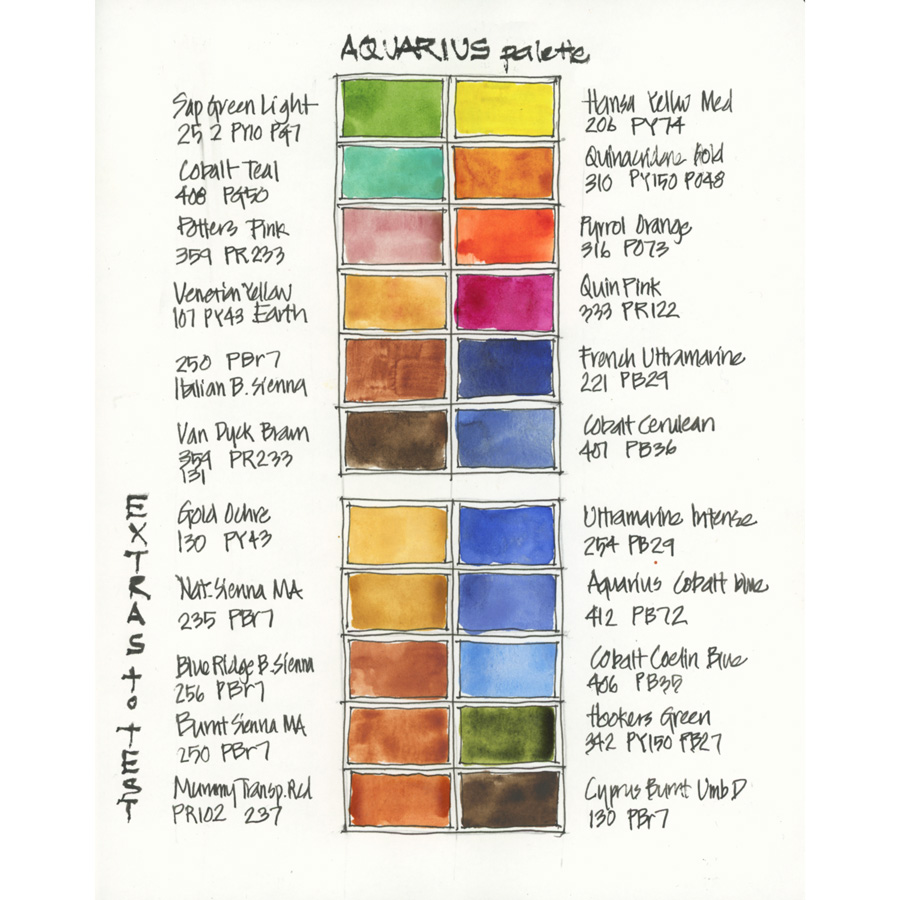 AQUARIUS palette
Sap Green Light
25 2 PY10 PG7
Hansa Yellow Med
206 PY74
Cobalt Teal
408 PG50
Quinacridone Gold
310 PY150 PO48
Potters Pink
359 PR233
Pyrrol Orange
316 PO73
Venetian Yellow
107 PY43 Earth
Quin Pink
333 PR122
250 PBr7
Italian B. Sienna
French Ultramarine
221 PB29
Van Dyck Brown
359 PR233
131
Cobalt Cerulean
407 PB36
EXTRAS to TEST
Gold Ochre
130 PY43
Ultramarine Intense
254 PB29
Nat. Sienna MA
235 PBr7
Aquarius Cobalt blue
412 PB72
Blue Ridge B. Sienna
256 PBr7
Cobalt Coelin Blue
406 PB35
Burnt Sienna MA
250 PBr7
Hookers Green
342 PY150 PB27
Mummy Transp. Red
PR102 237
Cyprus Burnt Umb D
130 PBr7